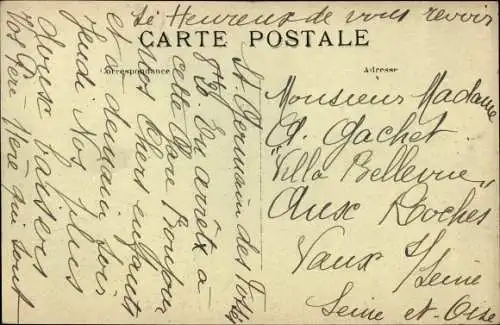 si Heureux de vous revoir
CARTE POSTALE
Correspondance
Adresse
St Germain des Fossés
8h30. En arrêt à
cette Gare Bonjour
mes Chers enfants
et à demain soir
Jeudi Nos plus
doux baisers
Vos qui sont
Monsieur Madame
A. Gachet
"Villa Bellevue"
Aux Roches
Vaux s/Seine
Seine et Oise